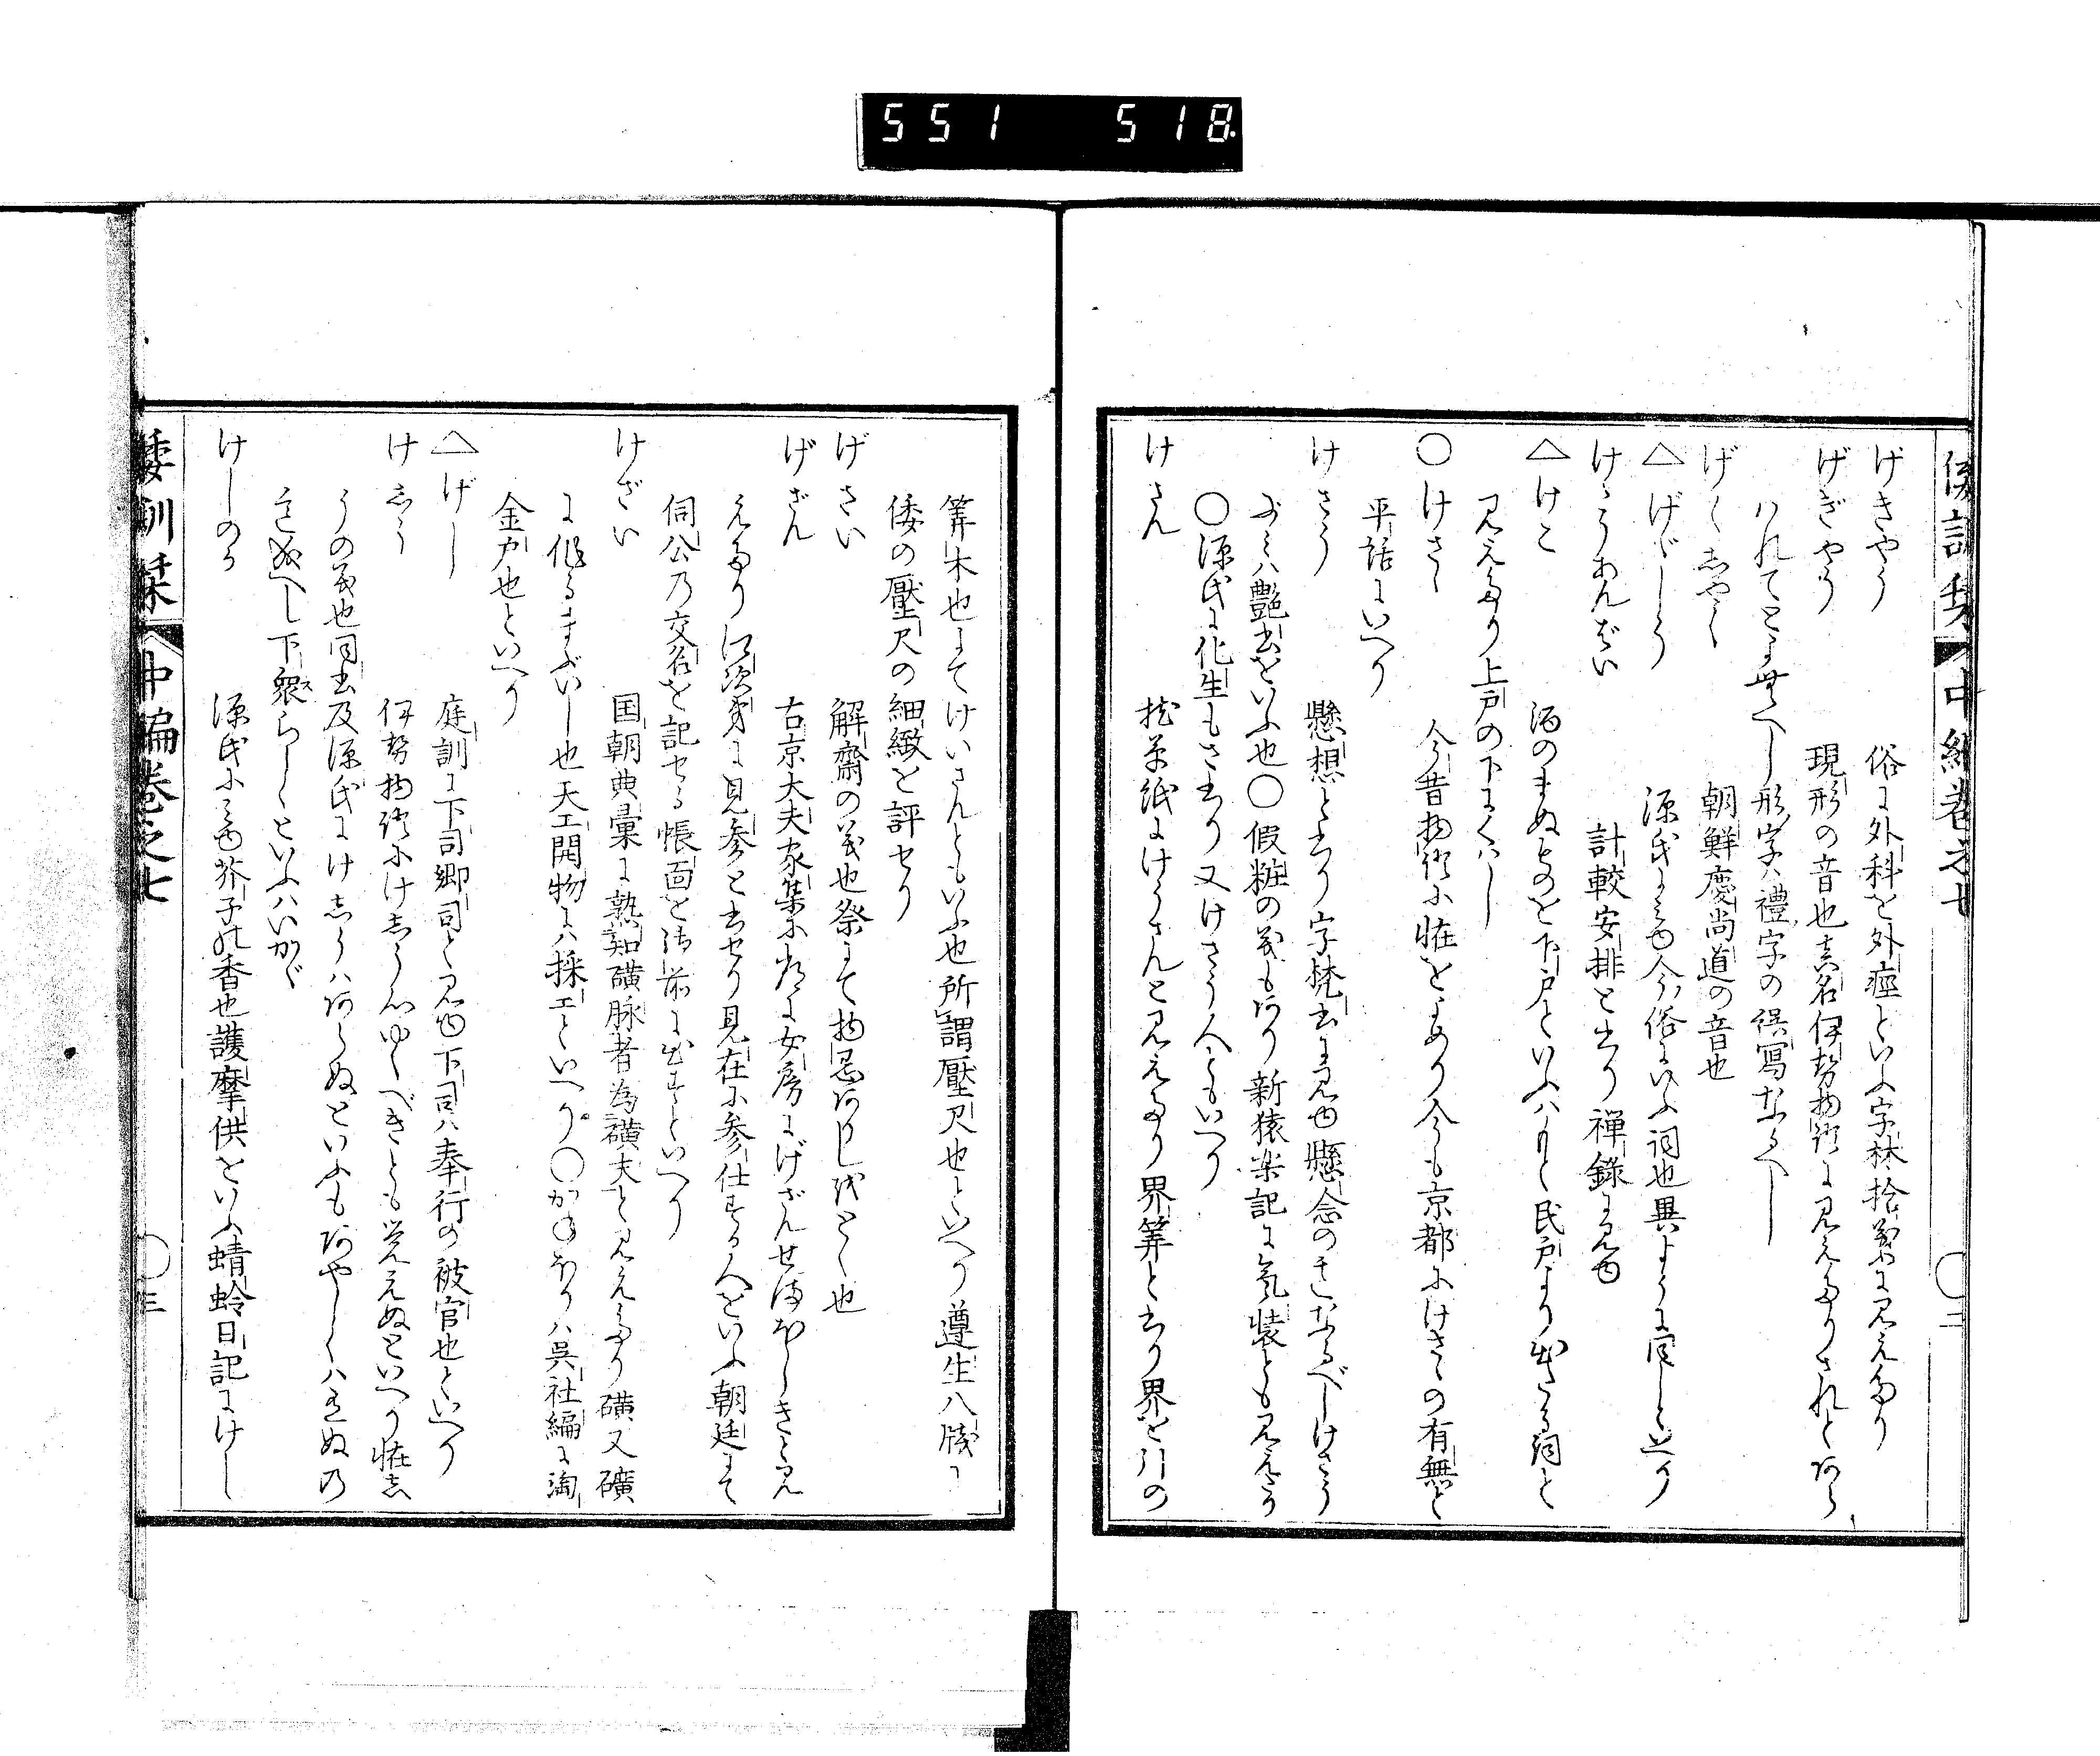 551 518
倭訓栞 中編巻之七 ○二
げきやう 俗に外科を外痙といふ字林拾葉に見えたり
げぎやう 現形の音也真名伊勢物語に見えたりされとあら
はれてとよ無へし形字ハ禮字の誤寫なるへし
げくしやく 朝鮮慶尚道の音也
△げゞしう 源氏にみゆ今俗にいふ詞也異ようと同しといへり
けうあんばい 計較安排と書り禅録に見ゆ
△けこ 酒のまぬものを下戸といふハもと民戸より出たる詞と
見えたり上戸の下にくはし
○けさく 今昔物語に粧をよめり今も京都にけさくの有無と
平話にいへり
けさう 懸想と書り字梵書に見ゆ懸念のきなるべしけさう
ぶみハ艶書をいふ也○假粧の義もあり新猿楽記に気装とも見えたり
○源氏に化生もさ書り又けさう人ともいへり
けさん 枕草紙にけうさんと見えたり界筭と書り界を引の
筭木也にてけいさんともいふ也所謂壓尺也といへり遵生八牋に
倭の壓尺の細緻を評せり
げさい 解齋の義也祭にて物忌ありしをとく也
げざん 右京大夫家集に女房にげざんせまほしきと見
えたり江次第に見参と書せり見在に参仕する人をいふ朝廷にて
伺公乃交名を記せる帳面を御前に出すといへり
けざい 国朝典彙に熟知礦脉者為礦夫と見えたり礦又礦
に作るまぶし也天工開物にハ採工といへり○かねほりハ呉社編に淘
金戸也といへり
△げし 庭訓に下司郷司と見ゆ下司ハ奉行の被官也といへり
けしう 伊勢物語にけしう心ゆくべきとも覚えぬといへり粧し
うの義也同書及源氏にけしうハあらぬといふもあやしくハきぬの
意成へし下衆らしくといふハいかゞ
けしのか 源氏にみゆ芥子の香也護摩供をいふ蜻蛉日記にけし
倭訓栞 中編巻之七 ○三